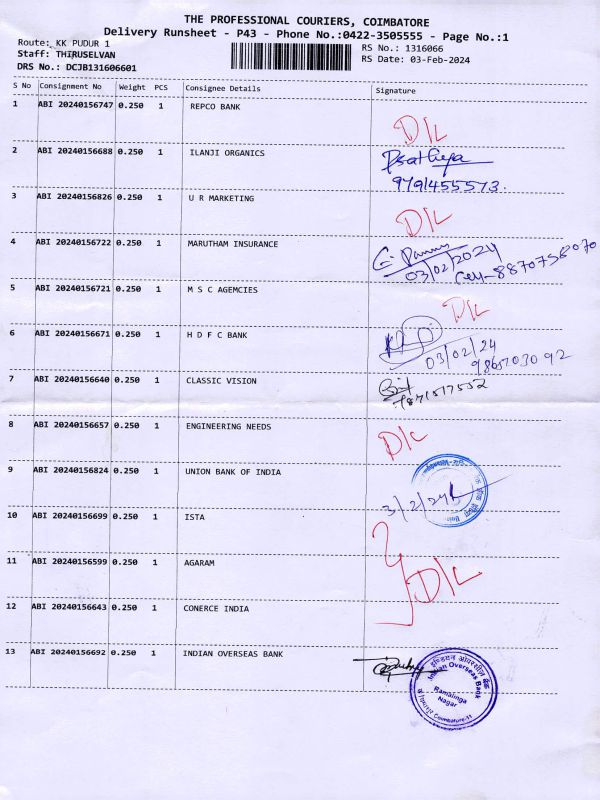 THE PROFESSIONAL COURIERS, COIMBATORE
Delivery Runsheet - P43 - Phone No.:0422-3505555 - Page No.:1
Route: KK PUDUR 1
RS No.: 1316066
Staff: THIRUSELVAN
RS Date: 03-Feb-2024
DRS No.: DCJB131606601
S No Consignment No Weight PCS Consignee Details Signature
1 ABI 20240156747 0.250 1 REPCO BANK
D/L
2 ABI 20240156688 0.250 1 ILANJI ORGANICS
9791455573.
3 ABI 20240156826 0.250 1 U R MARKETING
D/L
4 ABI 20240156722 0.250 1 MARUTHAM INSURANCE
03/02/2024
5 ABI 20240156721 0.250 1 M S C AGEMCIES
D/L
6 ABI 20240156671 0.250 1 H D F C BANK
03/02/24
7 ABI 20240156640 0.250 1 CLASSIC VISION
8 ABI 20240156657 0.250 1 ENGINEERING NEEDS
D/L
9 ABI 20240156824 0.250 1 UNION BANK OF INDIA
3/2/24
10 ABI 20240156699 0.250 1 ISTA
11 ABI 20240156599 0.250 1 AGARAM
D/L
12 ABI 20240156643 0.250 1 CONERCE INDIA
13 ABI 20240156692 0.250 1 INDIAN OVERSEAS BANK
Indian Overseas Bank
Ramalinga
Nagar
Coimbatore-11